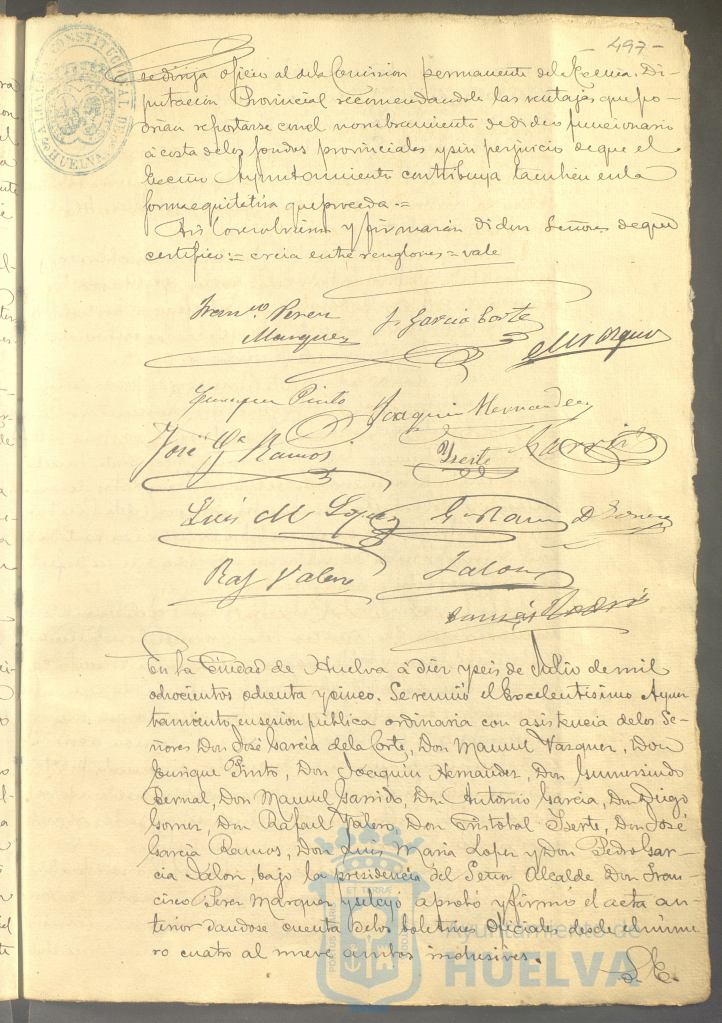 - 497 -
ALCALDIA CONSTITUCIONAL DE HUELVA
se dirija oficio al dela Comision permanente dela Excma. Di-
putacion Provincial recomendandole las ventajas que po-
drian reportarse con el nombramiento de dicho funcionario
á costa delos fondos provinciales y sin perjuicio de que el
Excmo Ayuntamiento contribuya tambien en la
forma equitativa que proceda.=
Asi lo acordaron y firmarán dichos Señores de que
certifico:= creia entre renglones = vale
Franco. Perez
Marquez
J. Garcia Corte
M Vazquez
Enrique Pinto
Joaquin Hernandez
José Ga Ramos
Yserte
Garrido
Luis M Lopez
D Gomez
Raf Valero
Jalon
En la Ciudad de Huelva á diez y seis de Julio de mil
ochocientos ochenta y cinco. Se reunió el Excelentisimo Ayun-
tamiento en sesion pública ordinaria con asistencia delos Se-
ñores Don José Garcia dela Corte, Don Manuel Vazquez, Don
Enrique Pinto, Don Joaquin Hernandez, Don Gumersindo
Bernal, Don Manuel Garrido, Don Antonio Garcia, Don Diego
Gomez, Don Rafael Valero, Don Cristobal Yserte, Don José
Garcia Ramos, Don Luis Maria Lopez y Don Pedro Gar-
cia Jalon, bajo la presidencia del Señor Alcalde Don Fran-
cisco Perez Marquez y se leyó aprobó y firmó el acta an-
terior dandose cuenta delos boletines oficiales desde el núme-
ro cuatro al nueve ambos inclusives.
Ayuntamiento de
HUELVA